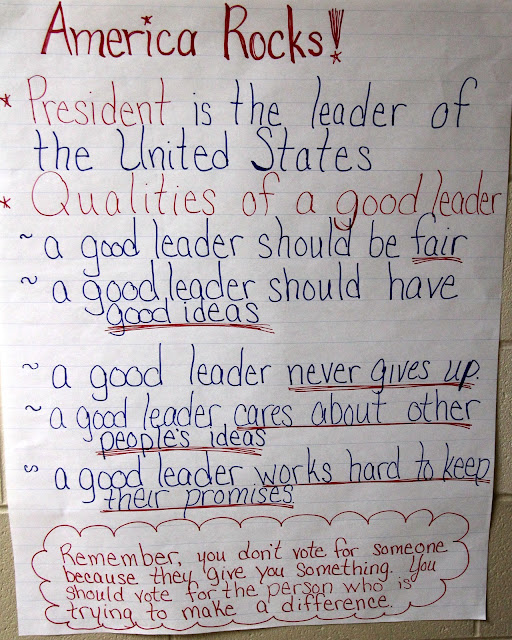 America Rocks!
* President is the leader of
the United States
* Qualities of a good leader
~ a good leader should be fair
~ a good leader should have
good ideas
~ a good leader never gives up.
~ a good leader cares about other
people's ideas
~ a good leader works hard to keep
their promises
Remember, you don't vote for someone
because they give you something. You
should vote for the person who is
trying to make a difference.